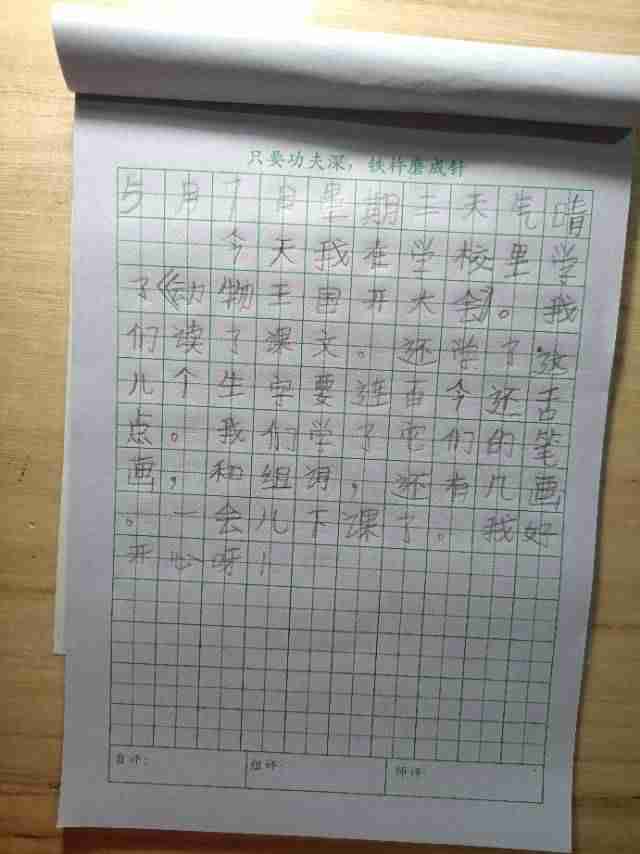 只要功夫深，铁杵磨成针
5月7日星期三天气晴
今天我在学校里学
了《动物王国开大会》。我
们读了课文。还学了这
几个生字要连百今还舌
点。我们学了它们的笔
画，和组词，还有几画
。一会儿下课了。我好
开心呀！
自评：
组评：
师评：